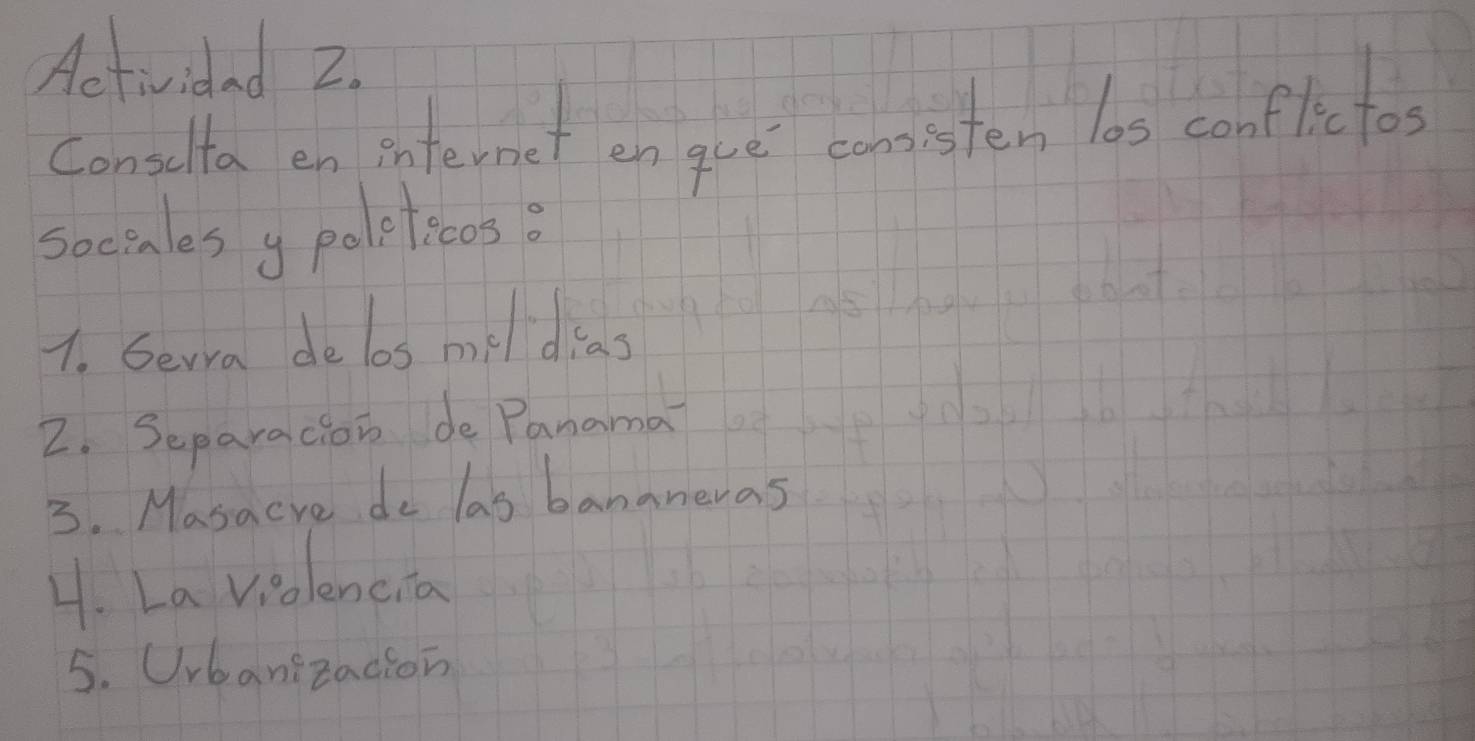 Actividad 2.
Consulta en internet en qué consisten los conflictos
sociales y políticos:
1. Gerra de los mil días
2. Separación de Panamá
3. Masacre de las bananeras
4. La violencia
5. Urbanización